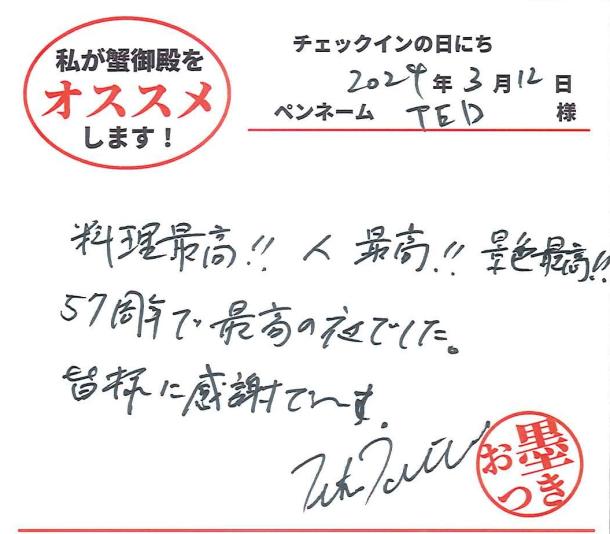 私が蟹御殿を
オススメ
します！
チェックインの日にち
2024年3月12日
ペンネーム TED 様
料理最高!! 人 最高!! 景色最高!!
57周年で最高の夜でした。
皆様に感謝で〜す。
お墨
つき